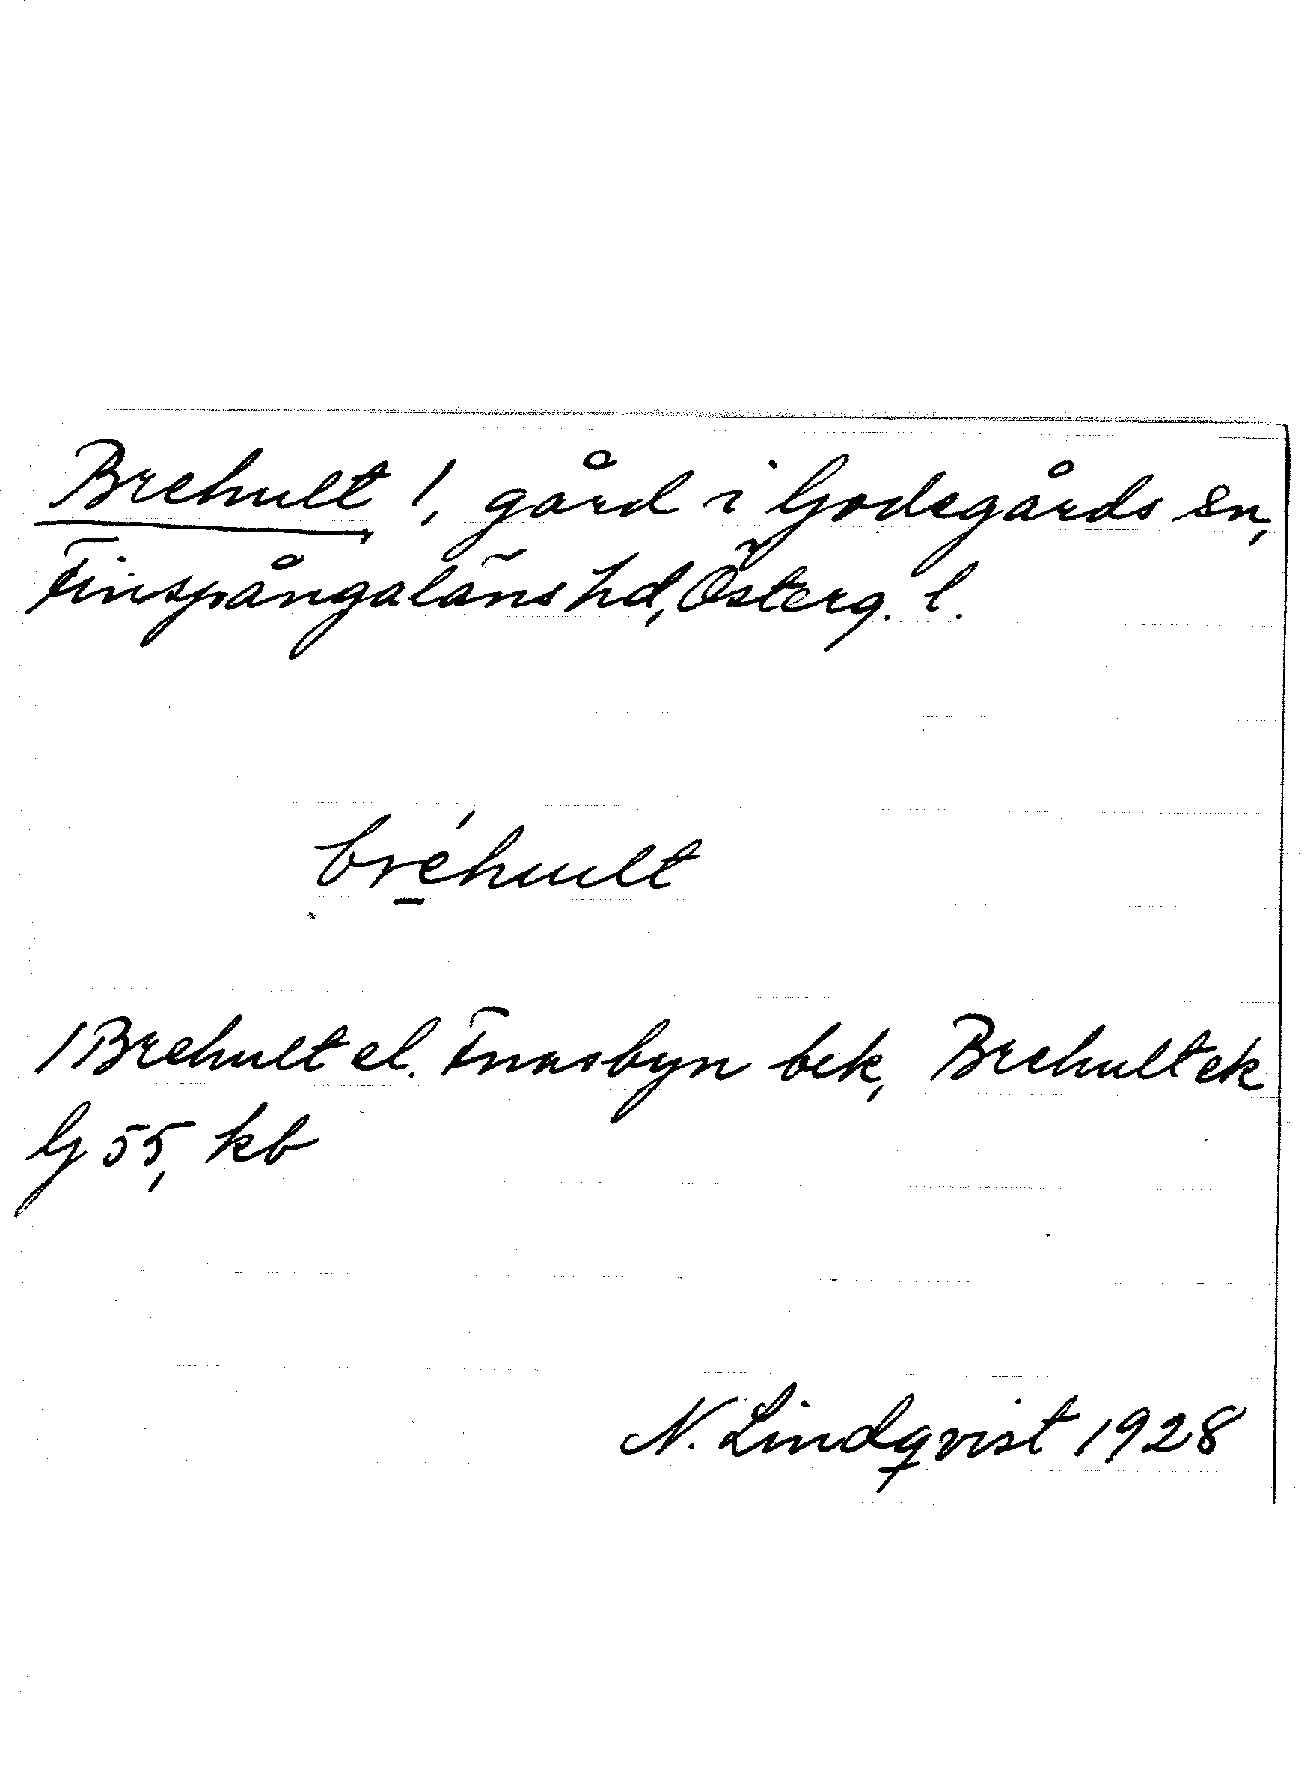 Brehult 1, gård i Godegårds sn,
Finspångaläns hd, Österg. l.
bréhult
1 Brehult el. Fnasbyn bek, Brehult ek
G 55, kb
N. Lindqvist 1928